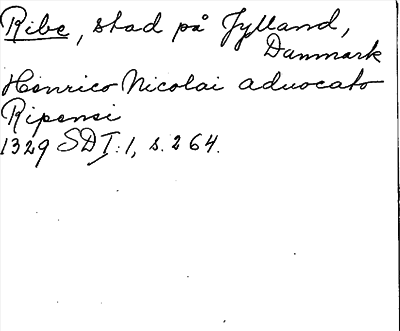 Ribe, stad på Jylland,
Danmark
Henrico Nicolai aduocato
Ripensi
1329 SD I:1, s. 264.